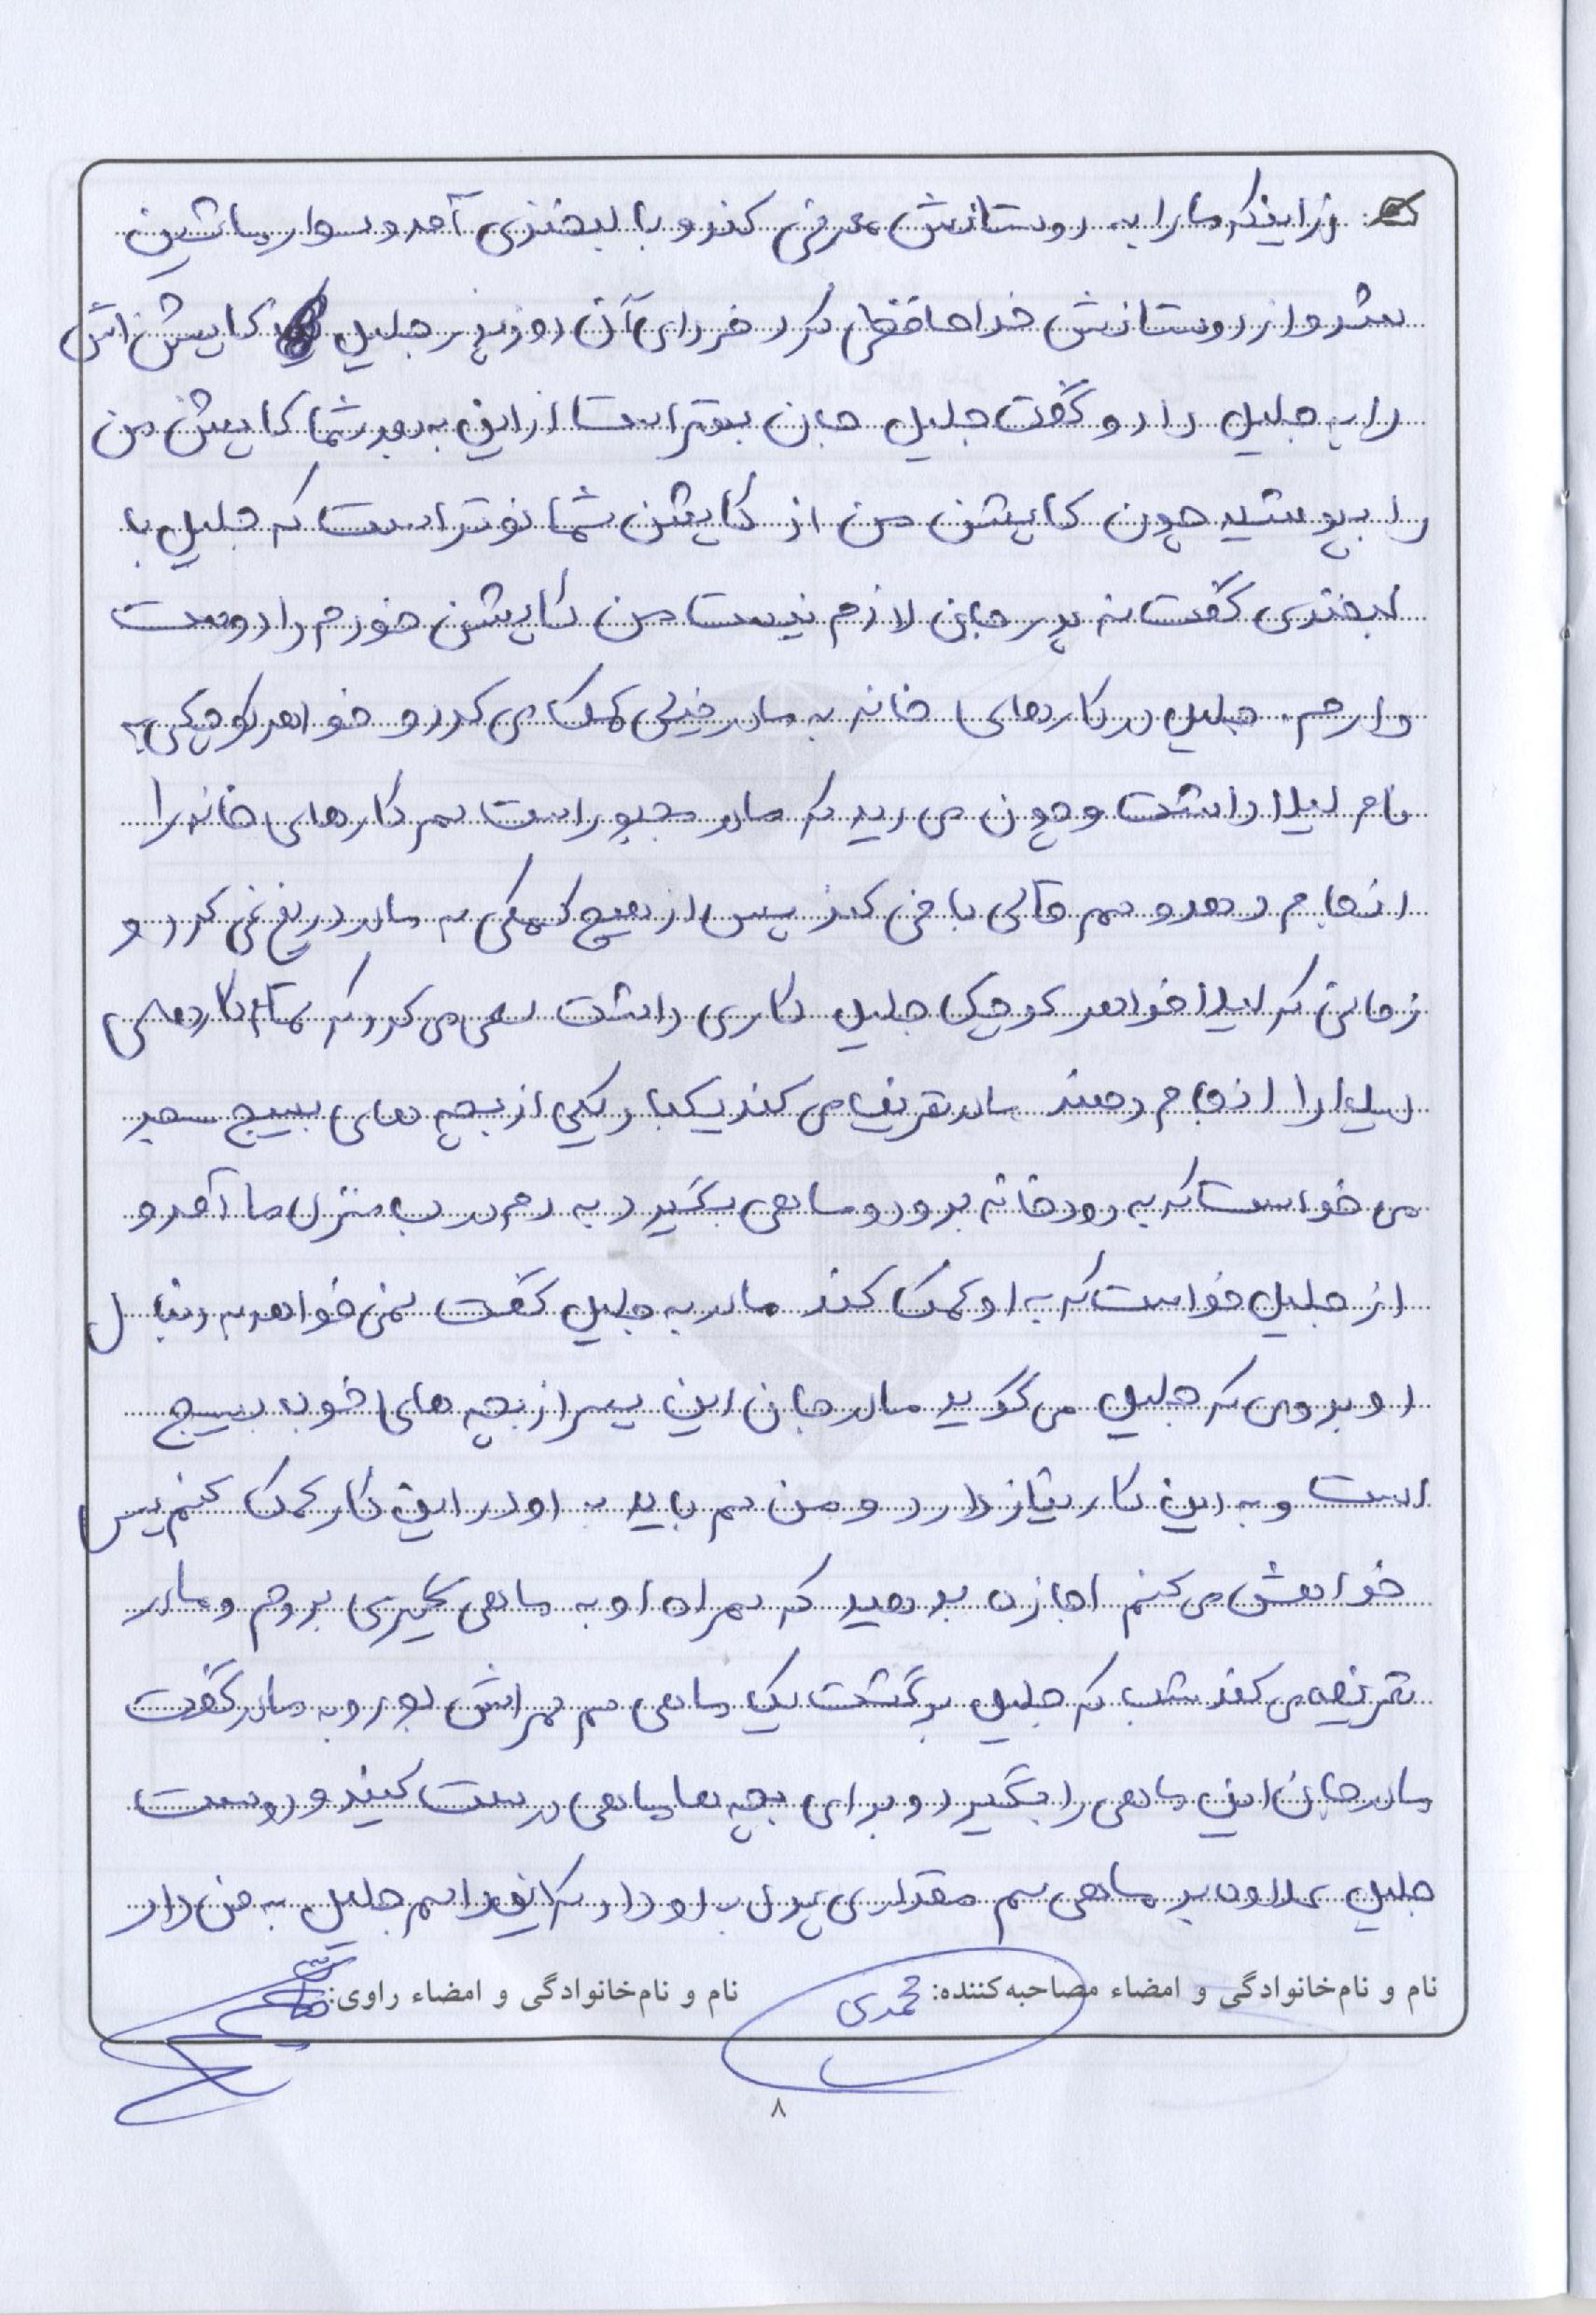 زاینکه ما را به دوستانش معرفی کند و با لبخندی آمد و سوار ماشین
شد و از دوستانش خداحافظی کرد فردای آن روز پدر جلیل کاپیشن اش
را به جلیل داد و گفت جلیل جان بهتر است از این به بعد شما کاپیشن من
را بپوشید چون کاپیشن من از کاپیشن شما نوتر است که جلیل با
لبخندی گفت نه پدر جان لازم نیست من کاپیشن خودم را دوست
دارم. جلیل در کارهای خانه به مادر خیلی کمک می کرد و خواهر کوچکی به
نام لیلا داشت و چون می دید که مادر مجبور است هم کارهای خانه را
انجام دهد و هم قالی بافی کند پس از هیچ کمکی به مادر دریغ نمی کرد و
زمانی که لیلا خواهر کوچک جلیل کاری داشت سعی می کرد که تمام کارهای
لیلا را انجام دهند مادر تعریف می کند یکبار یکی از بچه های بسیج مسجد
می خواست که به رودخانه برود و ماهی بگیرد به دم درب منزل ما آمد و
از جلیل خواست که به او کمک کند مادر به جلیل گفت نمی خواهد به دنبال
او بروی که جلیل می گوید مادر جان این پسر از بچه های خوب بسیج
است و به این کار نیاز دارد و من هم باید به او در این کار کمک کنم پس
خواهش می کنم اجازه بدهید که همراه او به ماهی گیری بروم و مادر
تعریف می کند شب که جلیل برگشت یک ماهی هم همراش بود و به مادر گفت
مادر جان این ماهی را بگیرد و برای بچه ها ماهی درست کنید و دوست
جلیل علاوه بر ماهی هم مقداری پول به او داد که آنرا هم جلیل به من داد
نام و نام‌خانوادگی و امضاء مصاحبه‌کننده: محمدی
نام و نام‌خانوادگی و امضاء راوی:
۸